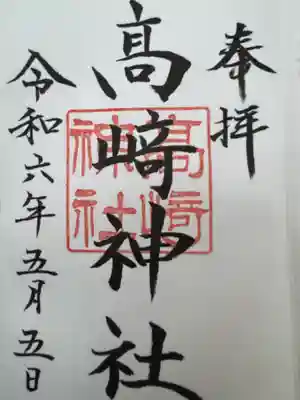 奉拝
髙﨑神社
髙﨑
神社
令和六年五月五日